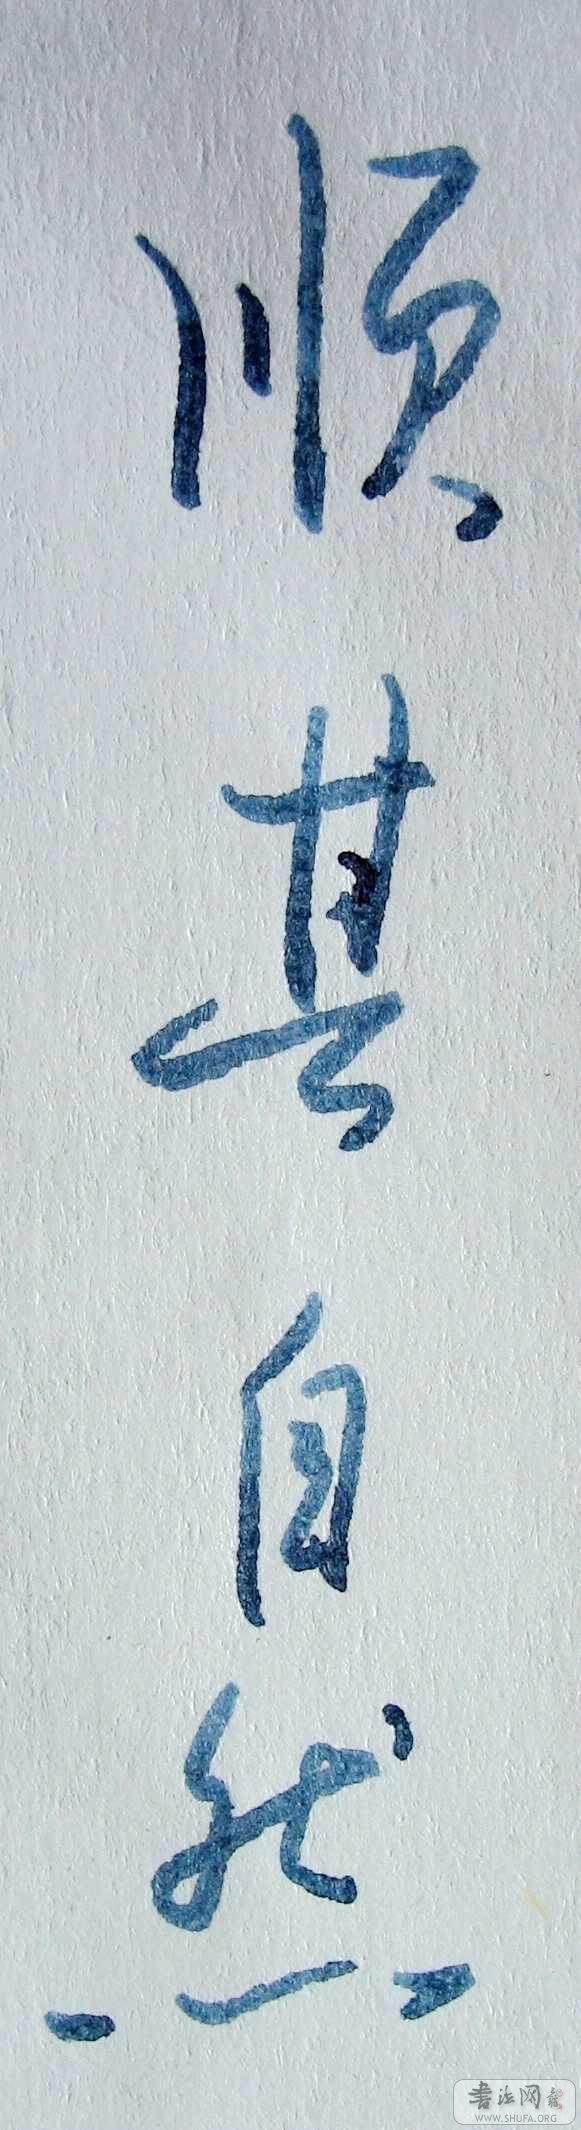 顺其自然
书法网
WWW.SHUFA.ORG